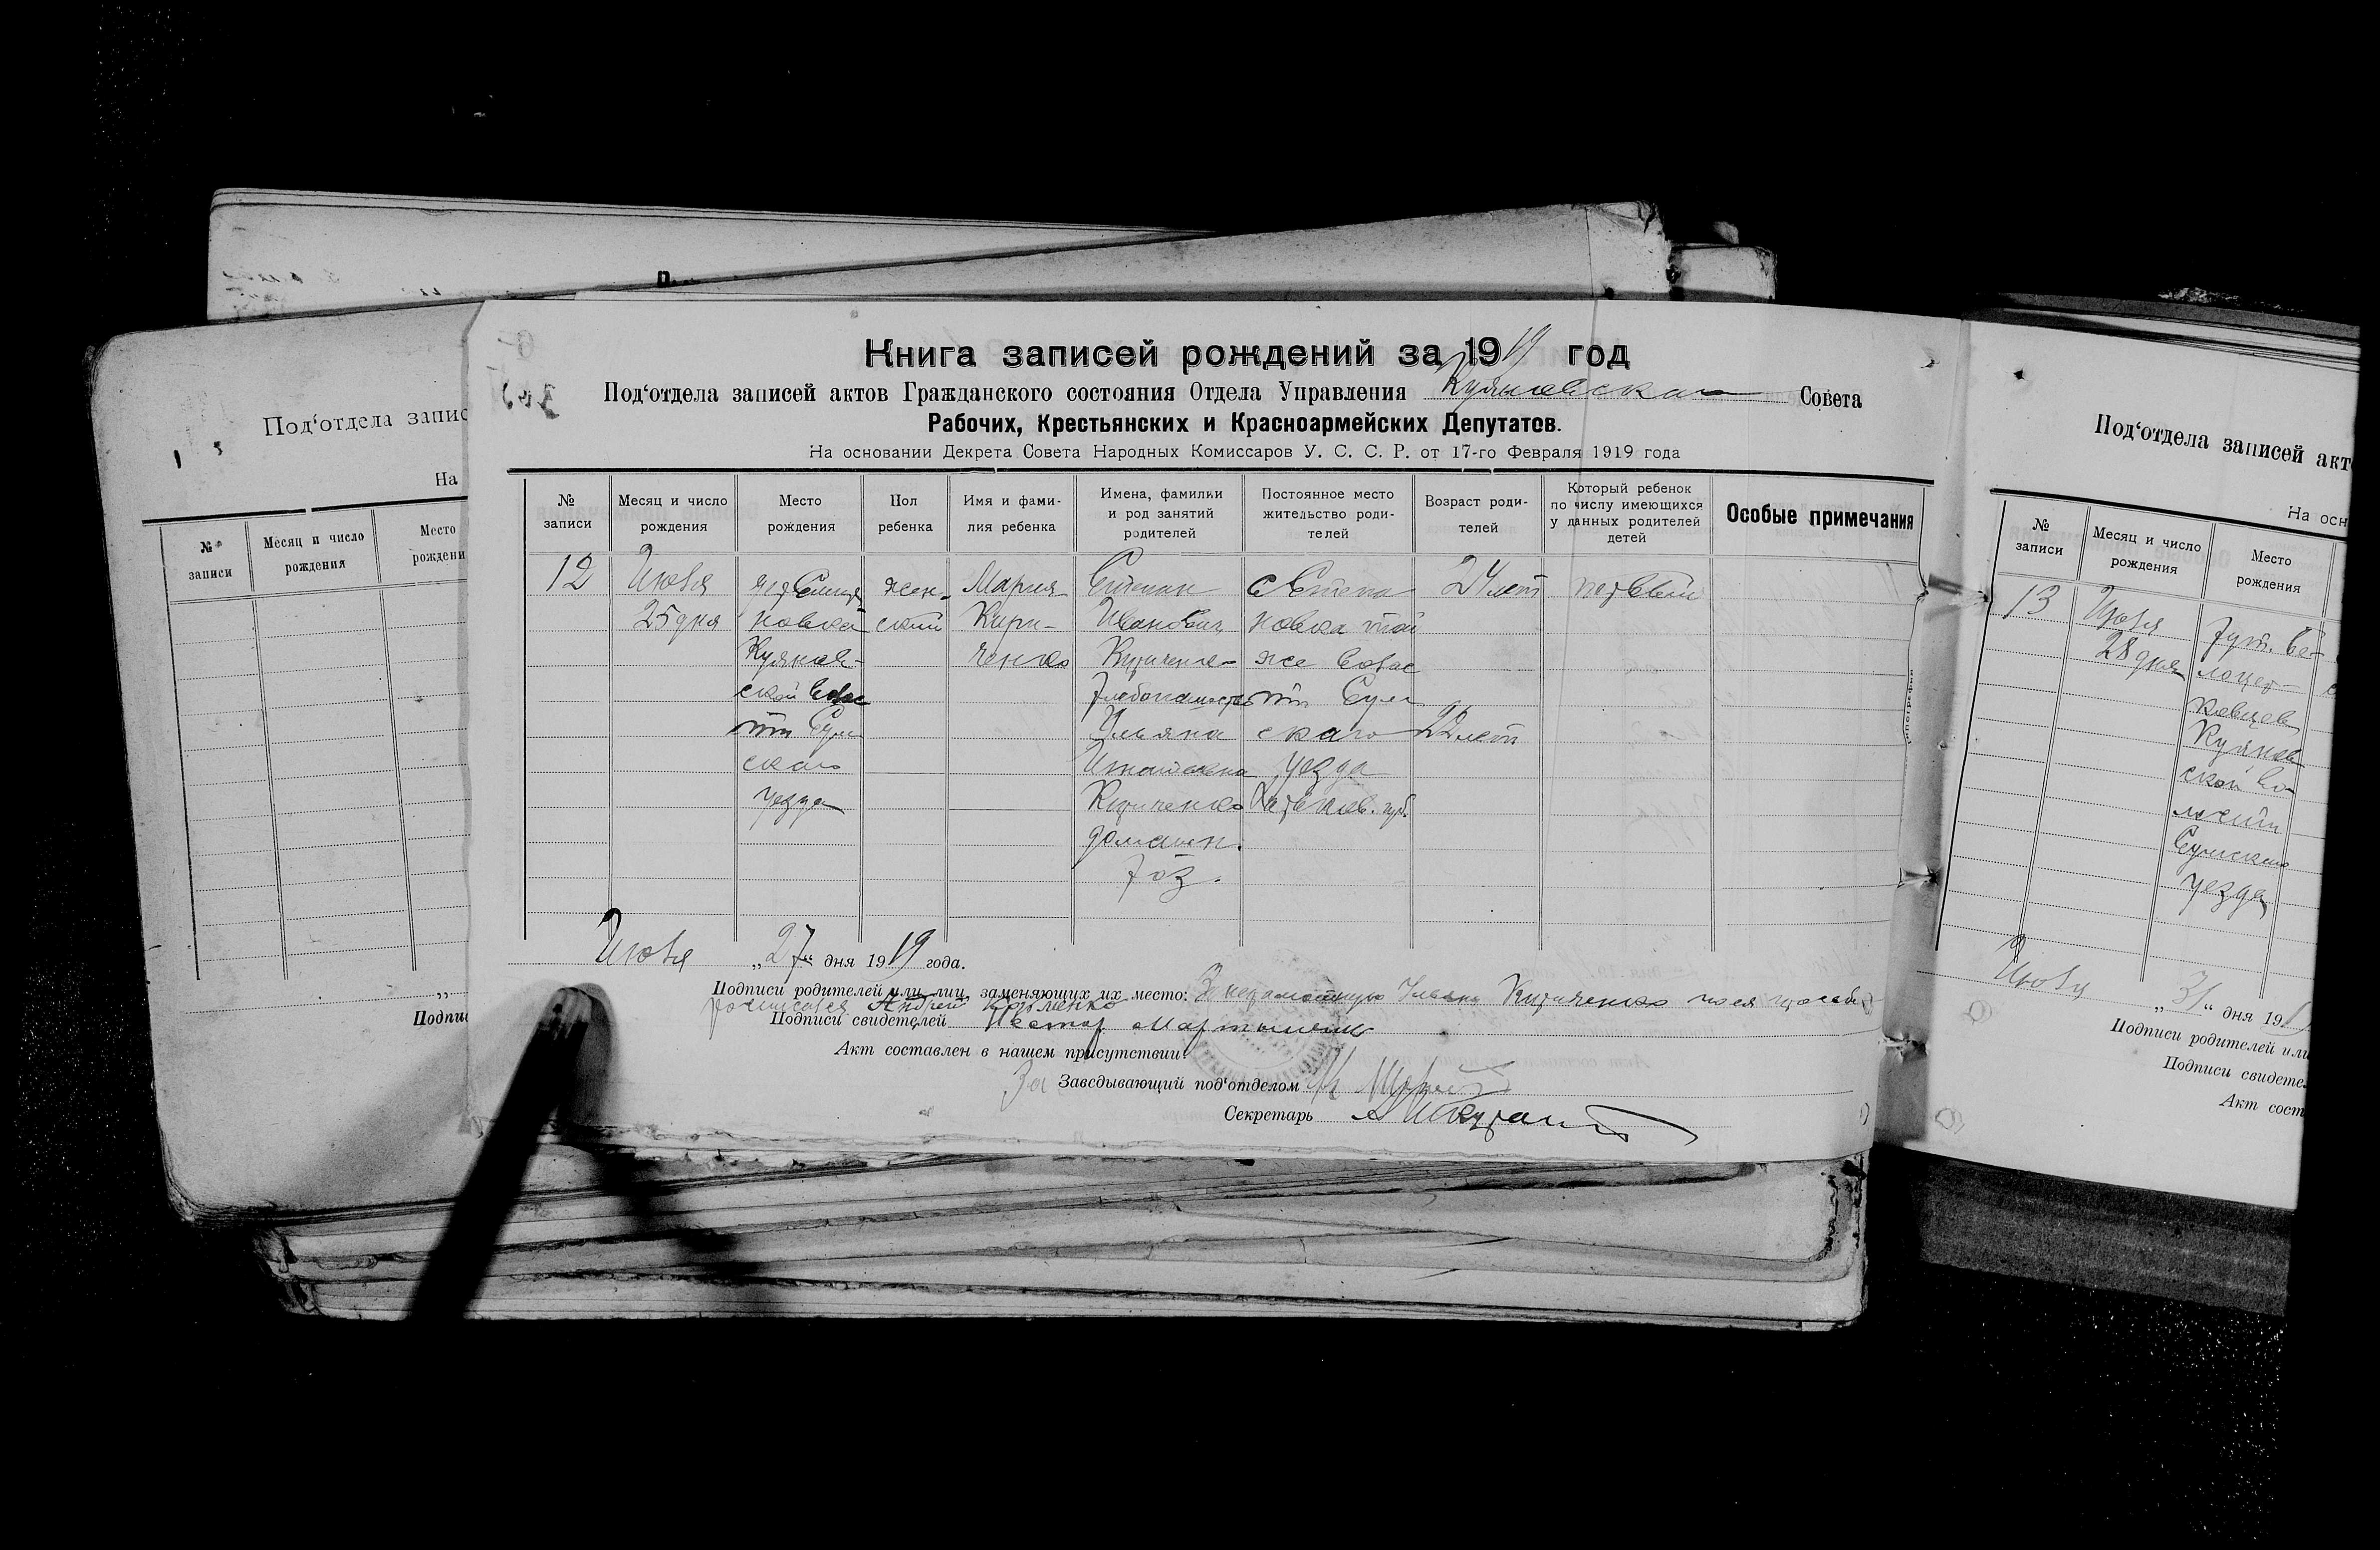 Книга записей рождений за 1919 год
Под‘отдела записей актов Гражданского состояния Отдела Управления Куяновскаго Совета
Рабочих, Крестьянских и Красноармейских Депутатов.
На основании Декрета Совета Народных Комиссаров У. С. С. Р. от 17-го Февраля 1919 года
№ записи
Месяц и число рождения
Место рождения
Пол ребенка
Имя и фами-
лия ребенка
Имена, фамилки
и род занятий
родителей
Постоянное место
жительство роди-
телей
Возраст роди-
телей
Который ребенок
по числу имеющихся
у данных родителей
детей
Особые примечания
12
Июля
25 дня
новка
Куянов-
ской волос
ти Сум
скаго
уезда
жен-
ский
Мария
Кири-
ченко
Степан
Иванович
Кириченко
Ульяна
Кириченко
домашн.
хоз.
с Степа
новка той
же волос
ти Сум
скаго
уезда
Харьков. губ.
24 лет
22 лет
первый
Июля „27“ дня 1919 года.
Подписи родителей или лиц заменяющих их место: За неграмотную Ульяну Кириченко по ея просьбе
росписался Андрей
Подписи свидетелей Нестор
Акт составлен в нашем присутствии:
За Заведывающий под‘отделом
Секретарь
Под‘отдела запис
На
№ записи
Месяц и число рождения
Место
рождени
„
Подпис
Под‘отдела записей акт
На осн
№ записи
Месяц и число рождения
Место рождения
13
Июля
28 дня
хут. Бе-
Куянов
ской во-
лости
Сумскаго
уезда
Июля „31“ дня 191
Подписи родителей или
Подписи свидете
Акт сост